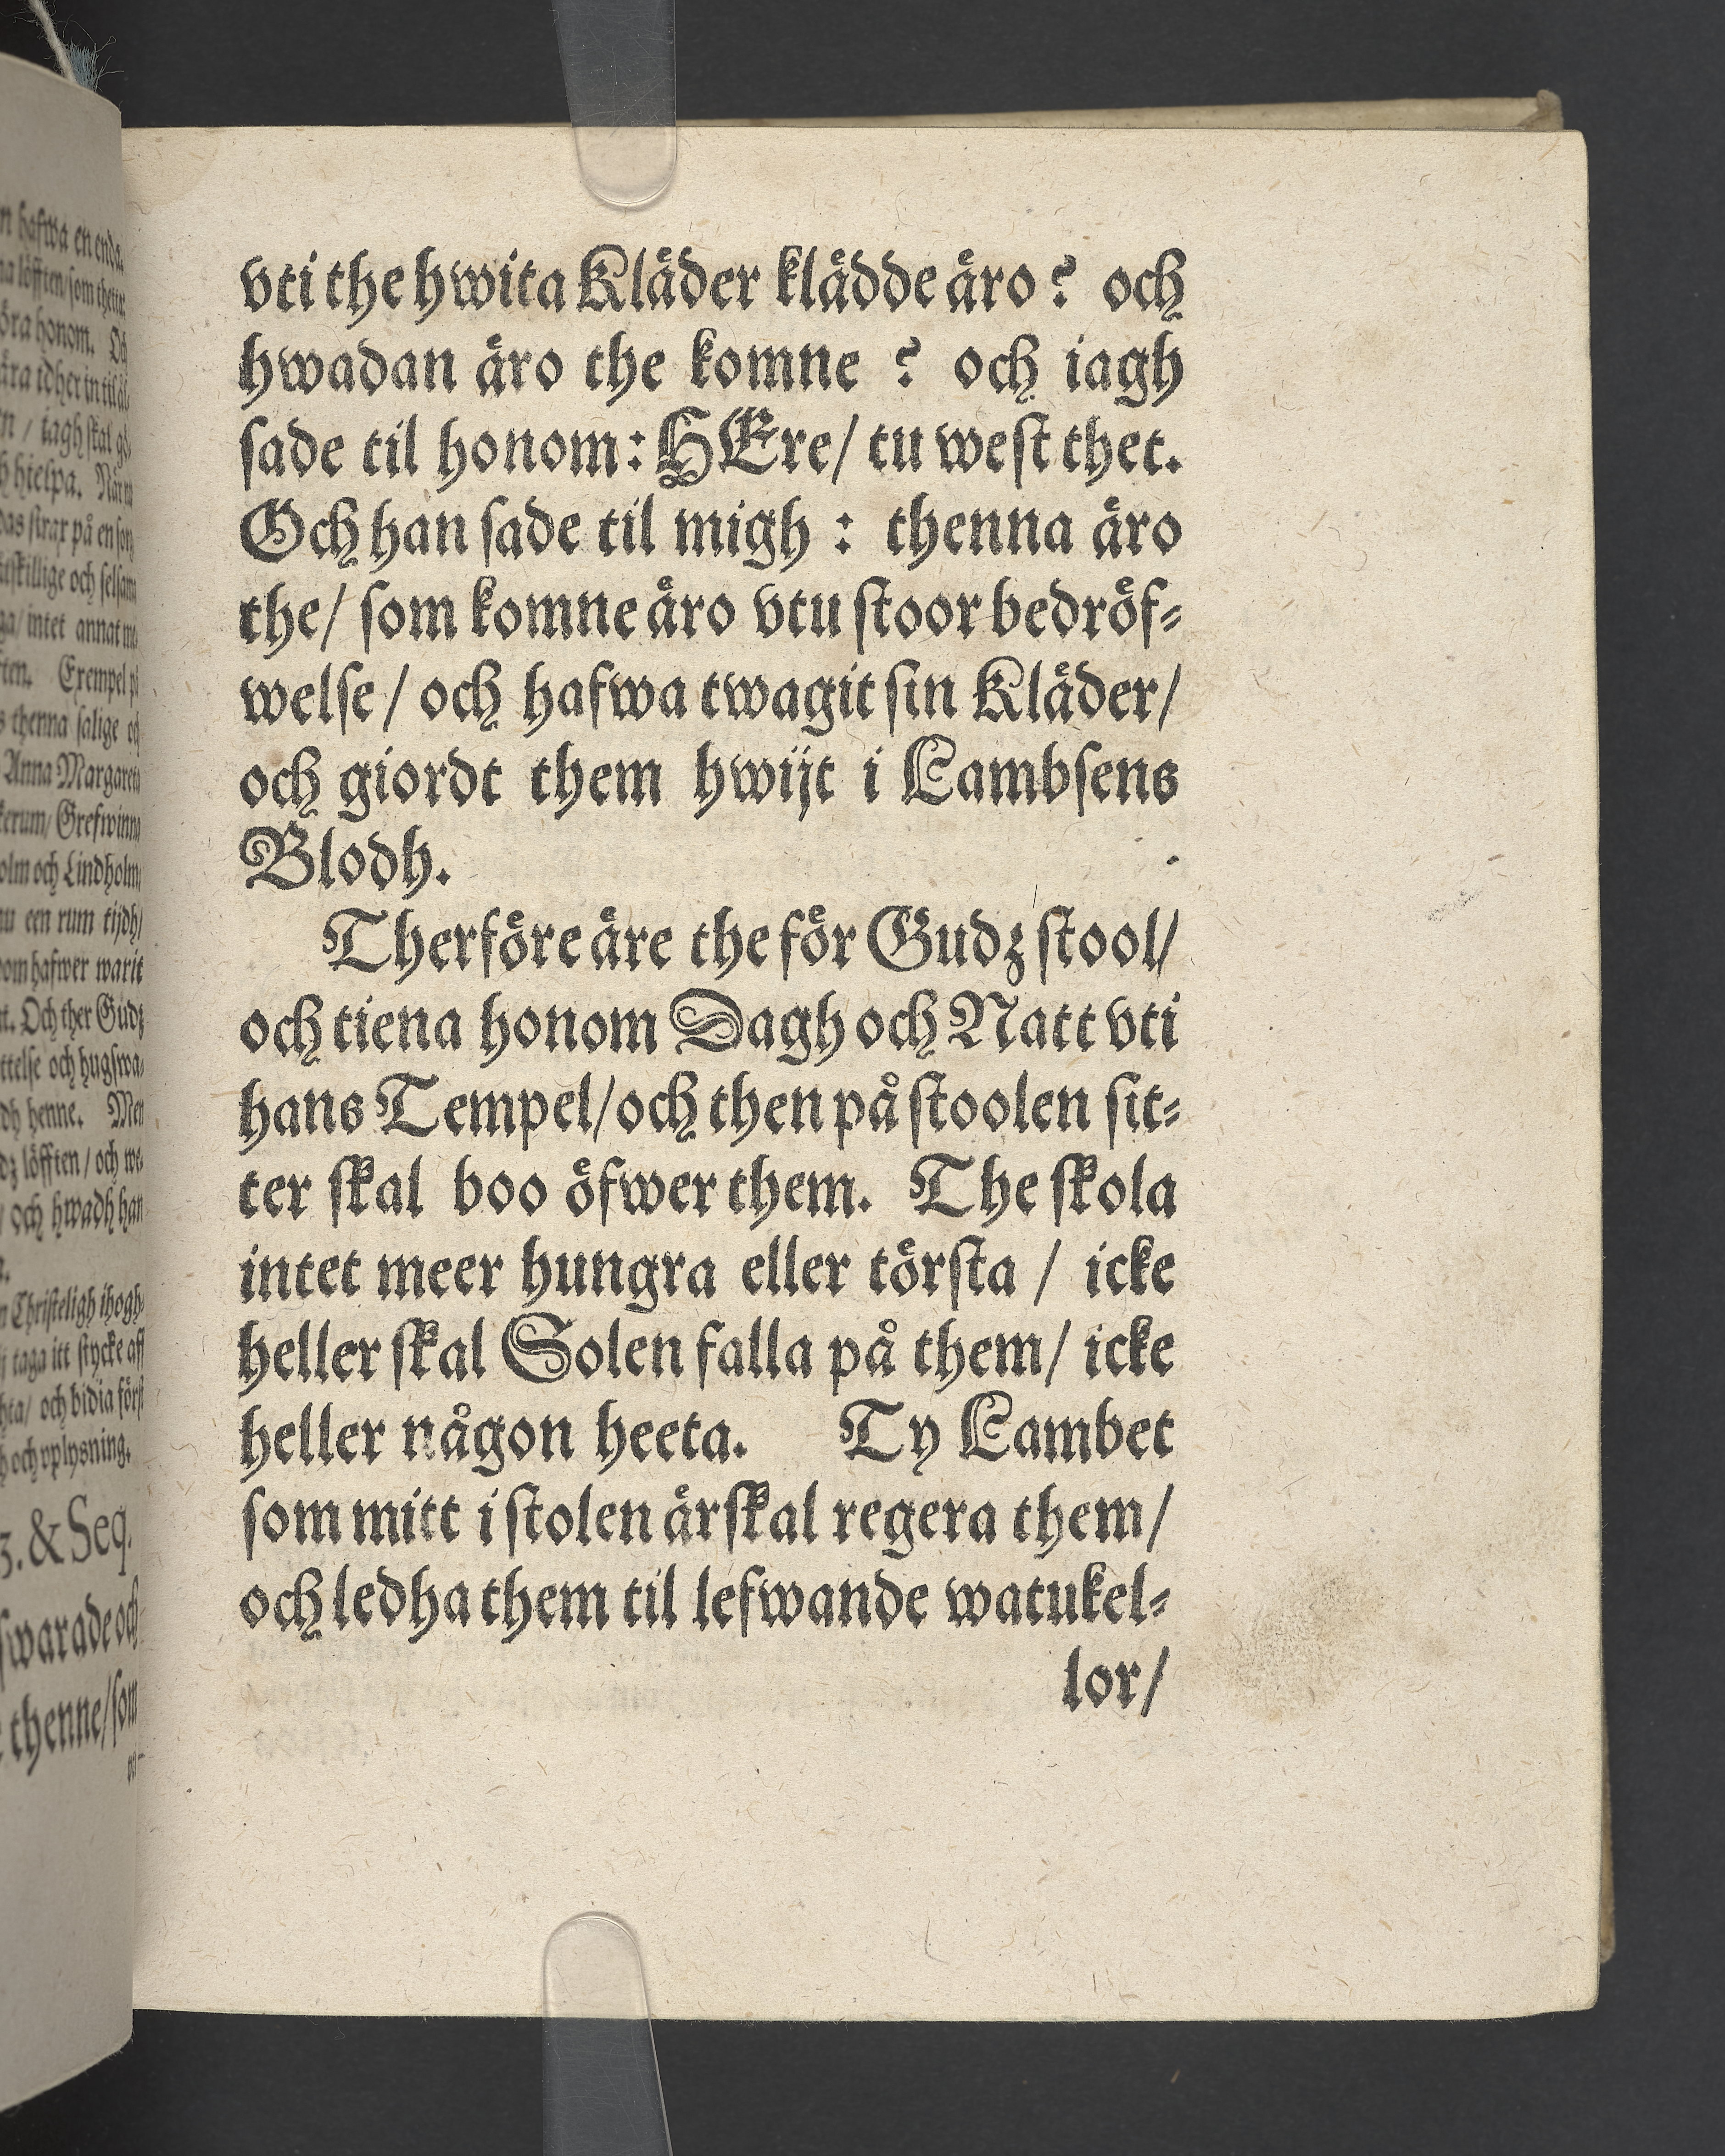 vti the hwita Kläder klädde äro? och
hwadan äro the komne ? och iagh
sade til honom: HEre/ tu west thet.
Och han sade til migh : thenna äro
the/ som komne äro vtu stoor bedröf-
welse/ och hafwa twagit sin Kläder/
och giordt them hwijt i Lambsens
Blodh.
Therföre äre the för Gudz stool/
och tiena honom Dagh och Natt vti
hans Tempel/ och then på stoolen sit-
ter skal boo öfwer them. The skola
intet meer hungra eller törsta / icke
heller skal Solen falla på them/ icke
heller någon heeta. Ty Lambet
som mitt i stolen är skal regera them/
och ledha them til lefwande watukel-
lor/